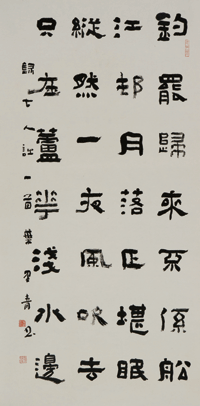 釣罷歸來不係船
江邨月落正堪眠
縱然一夜風吹去
只在蘆華淺水邊
人詩一首